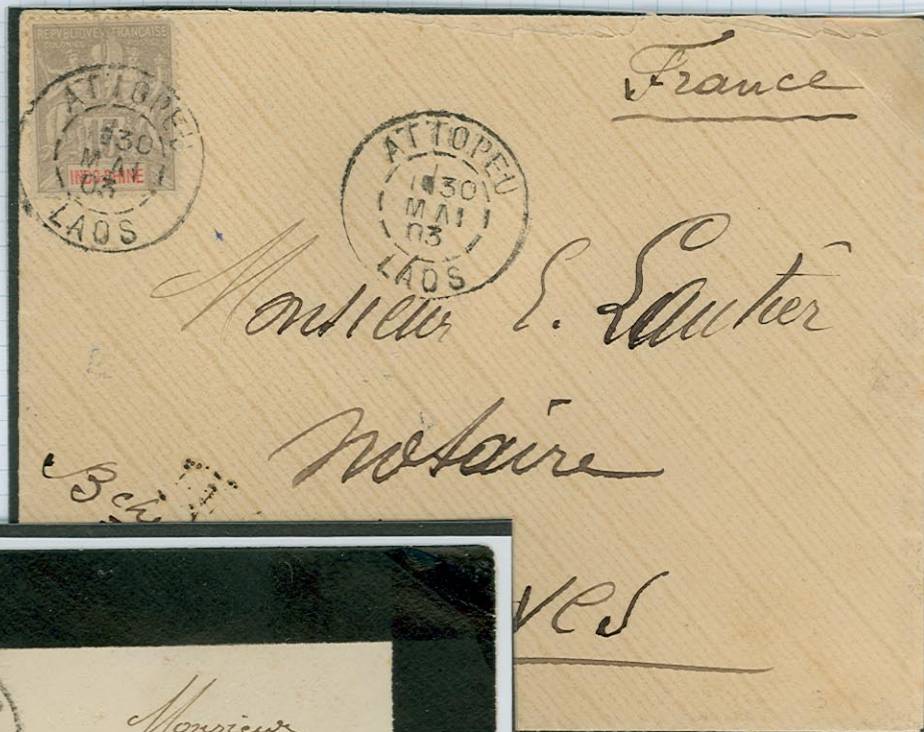 REPVBLIQVE FRANÇAISE
COLONIES
15
INDO-CHINE
ATTOPEU
1
30
MAI
03
LAOS
ATTOPEU
1
30
MAI
03
LAOS
France
Monsieur E. Lautier
notaire
Monsieur